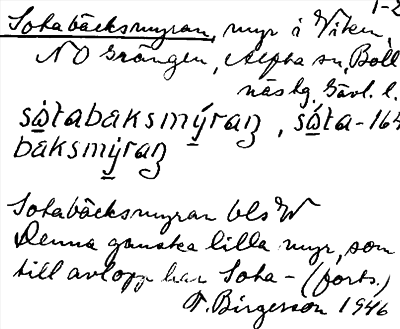 1-2
Sotabäcksmyran, myr i Viken,
NO Grängen, Alfta sn, Boll
näs lg, Gävl. l.
sòtabaksmýran, sòta- 164
baksmýran
Sotabäcksmyran bls W
Denna ganska lilla myr, som
till avlopp har Sota- (forts.)
F. Birgerson 1946